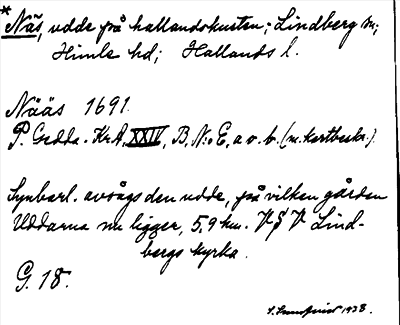 * Näs, udde på hallandskusten; Lindberg sn;
Himle hd; Hallands l.
Nääs 1691.
P. Gedda. KrA, XXIV, B, N:o E, a o. b. (m. kartbeskr.).
Synbarl. avsågs den udde, på vilken gården
Uddarna nu ligger, 5,9 km. VSV Lind-
bergs kyrka.
G. 18.
1938.